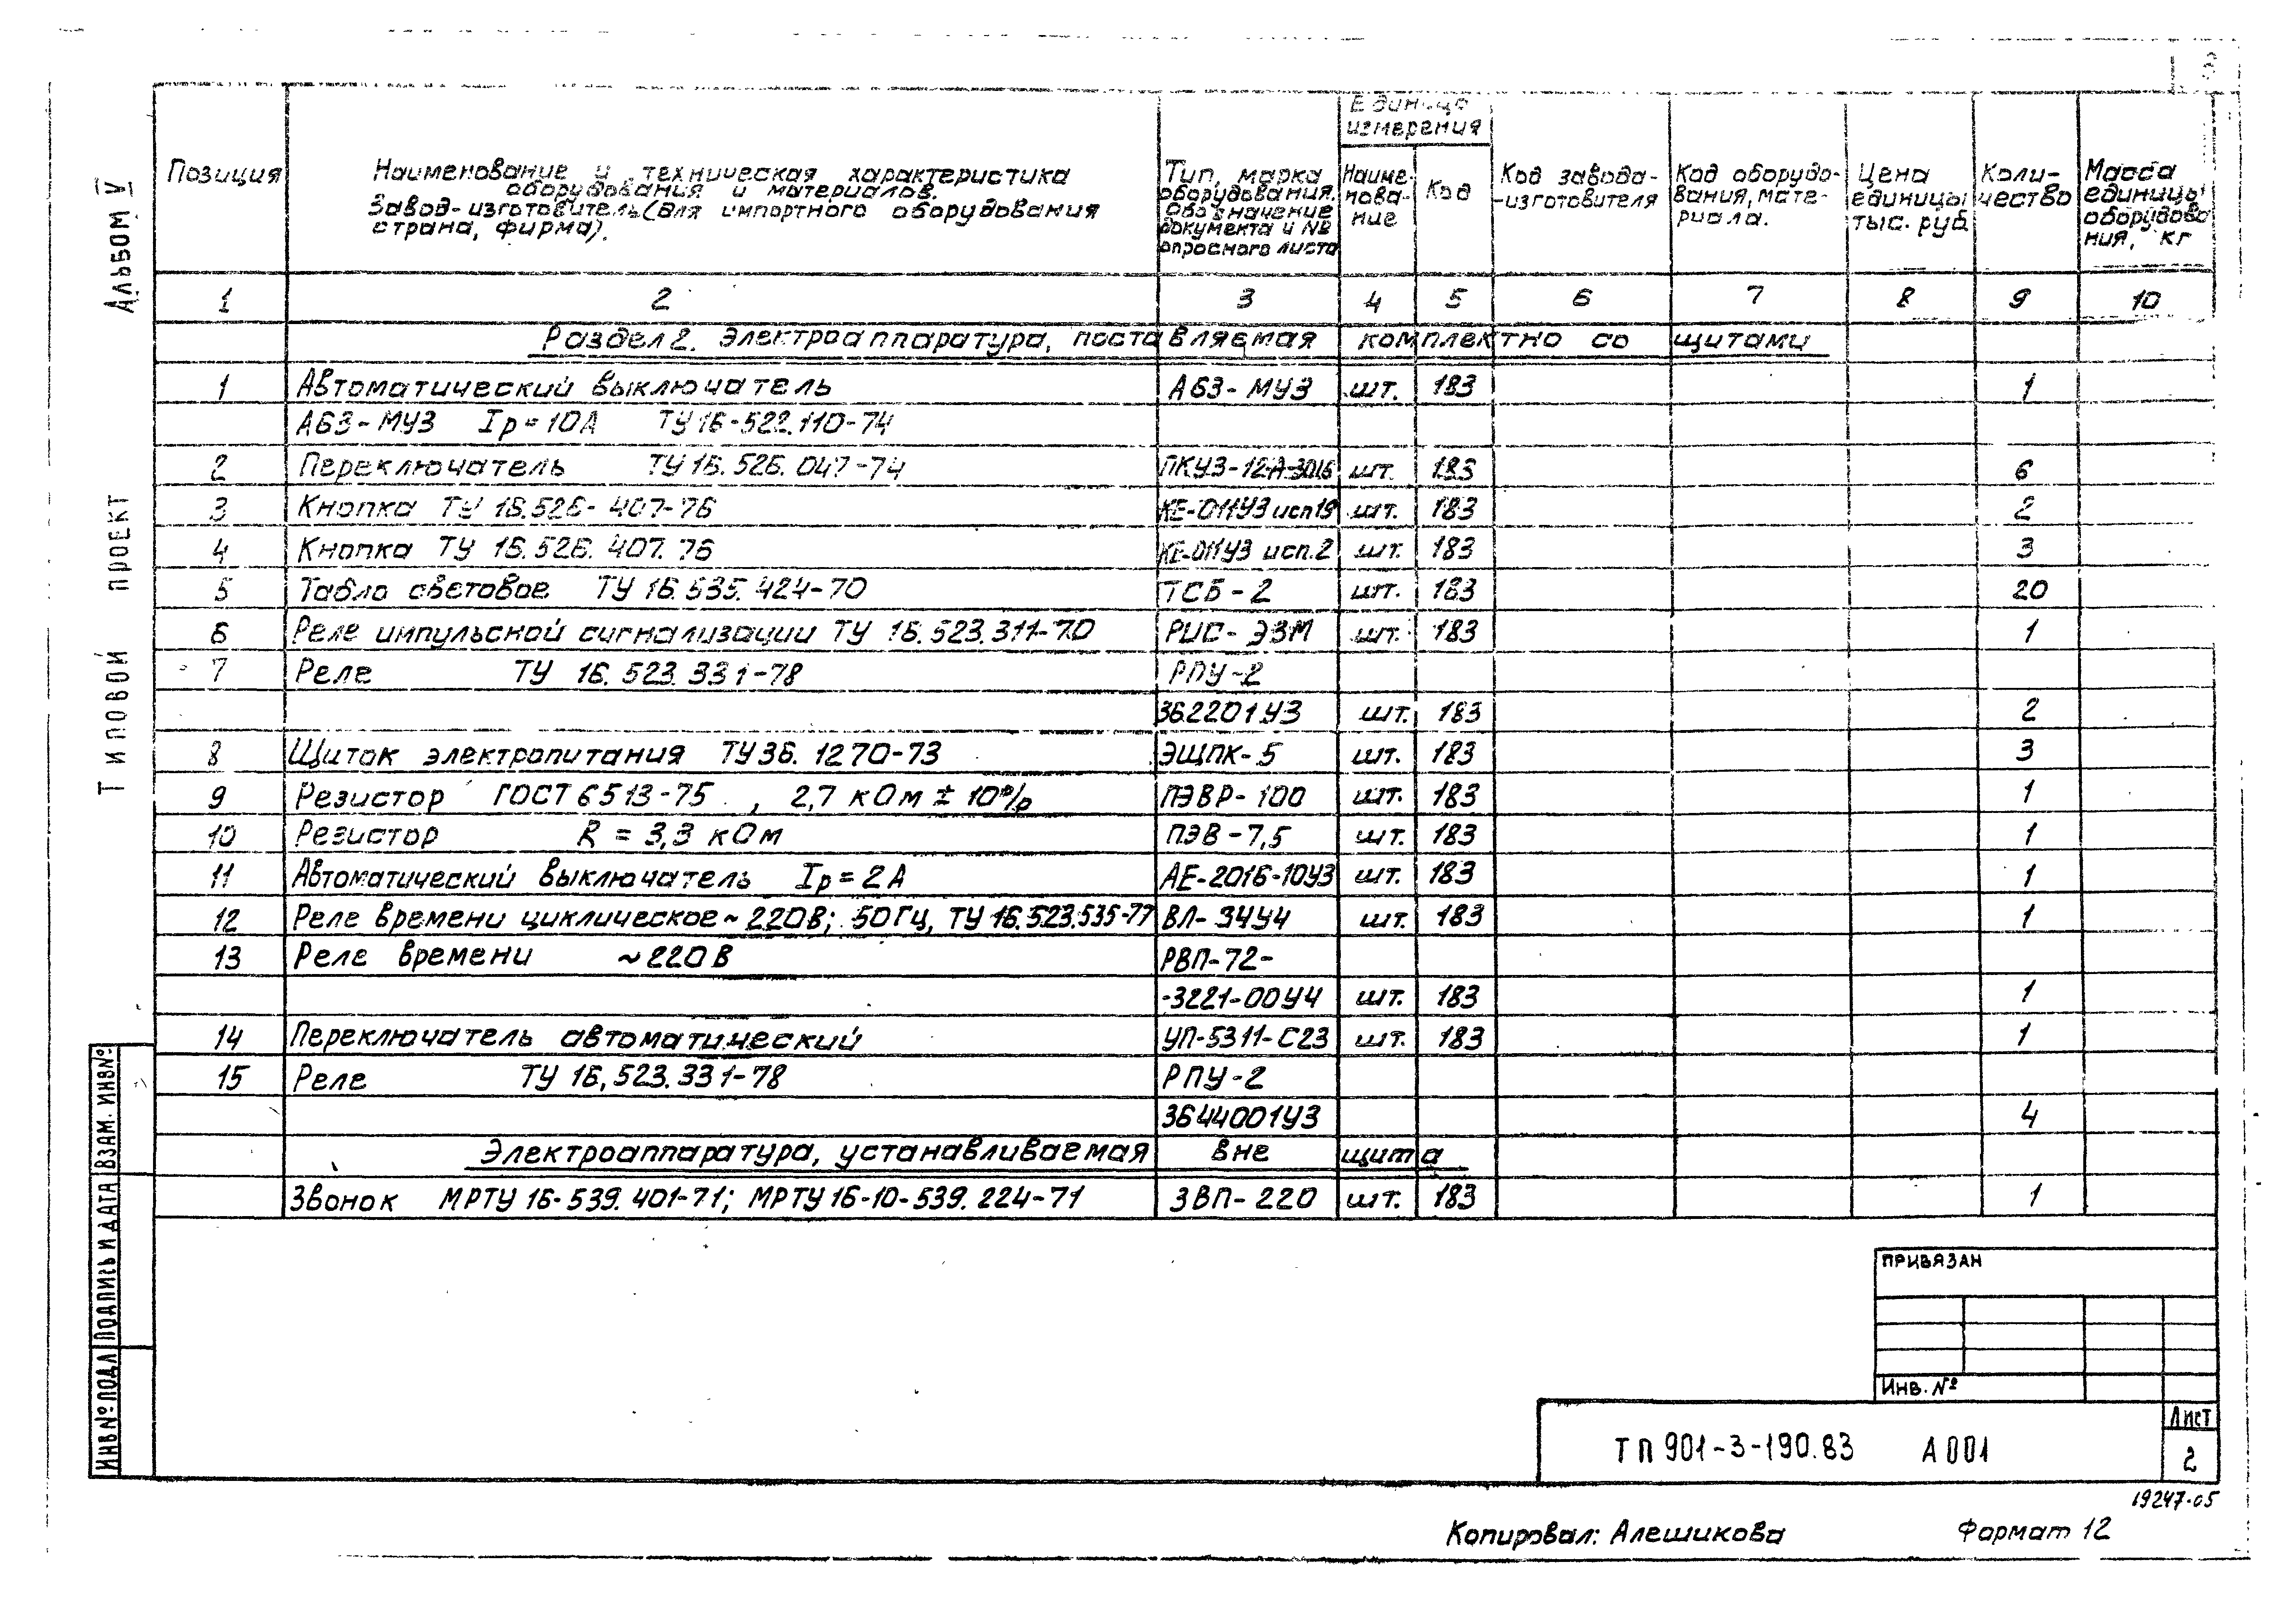 Альбом V
Типовой проект
Позиция
Наименование и техническая характеристика
оборудования и материалов.
Завод-изготовитель (для импортного оборудования
страна, фирма).
Тип, марка
оборудования.
Обозначение
документа и №
опросного листа
Единица
измерения
Наиме-
нова-
ние
Код
Код завода-
-изготовителя
Код оборудо-
вания, мате-
риала.
Цена
единицы
тыс. руб.
Коли-
чество
Масса
единицы
оборудова
ния, кг
1 2 3 4 5 6 7 8 9 10
Раздел 2. Электроаппаратура, поставляемая комплектно со щитами
1 Автоматический выключатель А63-МУ3 шт. 183 1
А63-МУ3 Iр=10А ТУ16-522.110-74
2 Переключатель ТУ 16.526.047-74 ПКУ3-12-А-3016 шт. 183 6
3 Кнопка ТУ 16.526-407-76 КЕ-011У3 исп19 шт. 183 2
4 Кнопка ТУ 16.526.407.76 КЕ-011У3 исп.2 шт. 183 3
5 Табло световое ТУ 16.535.424-70 ТСБ-2 шт. 183 20
6 Реле импульсной сигнализации ТУ 16.523.311-70 РИС-ЭЗМ шт. 183 1
7 Реле ТУ 16.523.331-78 РПУ-2
362201У3 шт. 183 2
8 Щиток электропитания ТУ36.1270-73 ЭЩПК-5 шт. 183 3
9 Резистор ГОСТ 6513-75, 2,7 кОм ± 10% ПЭВР-100 шт. 183 1
10 Резистор R = 3,3 кОм ПЭВ-7,5 шт. 183 1
11 Автоматический выключатель Iр=2А АЕ-2016-10У3 шт. 183 1
12 Реле времени циклическое ~ 220В; 50Гц, ТУ 16.523.535-77 ВЛ-34У4 шт. 183 1
13 Реле времени ~220В РВП-72-
-3221-00У4 шт. 183 1
14 Переключатель автоматический УП-5311-С23 шт. 183 1
15 Реле ТУ 16,523.331-78 РПУ-2
3644001У3 4
Электроаппаратура, устанавливаемая вне щита
Звонок МРТУ 16-539.401-71; МРТУ 16-10-539.224-71 ЗВП-220 шт. 183 1
ИНВ№ПОДЛ ПОДПИСЬ И ДАТА ВЗАМ. ИНВ№
ПРИВЯЗАН
ИНВ. №
ТП 901-3-190.83 А001
Лист
2
19247-05
Копировал: Алешикова Формат 12